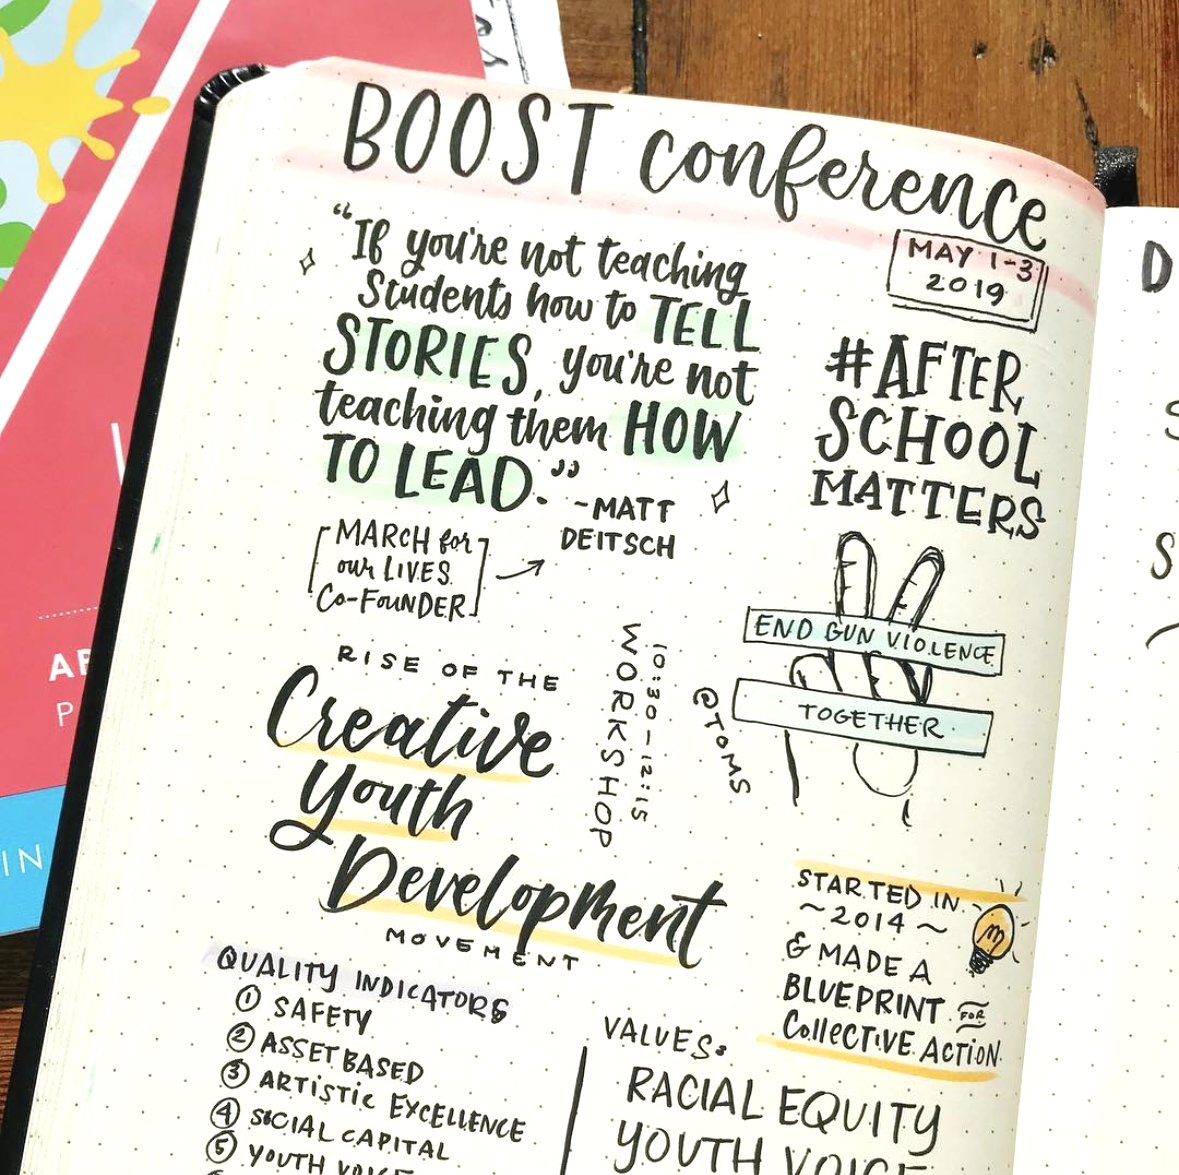 BOOST conference
MAY 1-3
2019
"If you're not teaching
Students how to TELL
STORIES, you're not
teaching them HOW
TO LEAD."
-MATT
DEITSCH
MARCH for
our LIVES
Co-FOUNDER
#AFTER
SCHOOL
MATTERS
END GUN VIOLENCE
TOGETHER
@TOMS
RISE OF THE
Creative
Youth
Development
MOVEMENT
WORKSHOP
10:30-12:15
STARTED IN
~2014~
& MADE A
BLUEPRINT FOR
Collective ACTION
QUALITY INDICATORS
① SAFETY
② ASSET BASED
③ ARTISTIC EXCELLENCE
④ SOCIAL CAPITAL
⑤ YOUTH VOICE
VALUES:
RACIAL EQUITY
YOUTH VOICE
D
S
S
IN